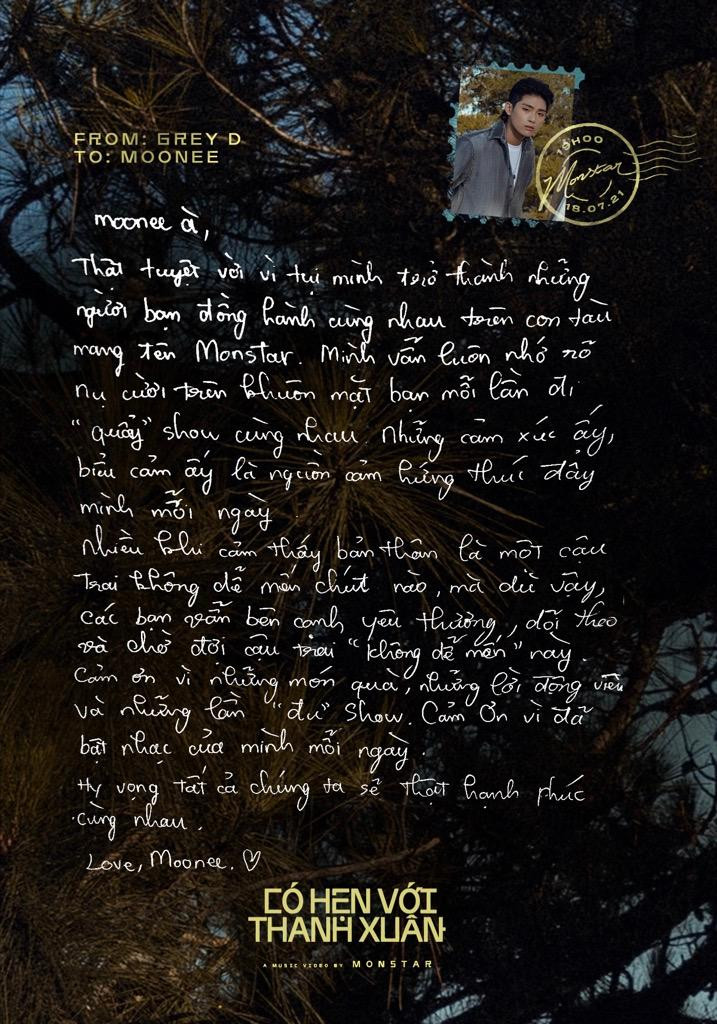 FROM: GREY D
TO: MOONEE
19H00
Monstar
18.07.21
moonee à,
Thật tuyệt vời vì tụi mình trở thành những
người bạn đồng hành cùng nhau trên con tàu
mang tên Monstar. Mình vẫn luôn nhớ rõ
nụ cười trên khuôn mặt bạn mỗi lần đi
“quẩy” show cùng nhau. Những cảm xúc ấy,
biểu cảm ấy là nguồn cảm hứng thúc đẩy
mình mỗi ngày.
Nhiều khi cảm thấy bản thân là một cậu
trai không dễ mến chút nào, mà dù vậy,
các bạn vẫn bên cạnh yêu thương, dõi theo
và chờ đợi cậu trai “không dễ mến” này.
Cảm ơn vì những món quà, những lời động viên
và những lần “đu” show. Cảm ơn vì đã
bật nhạc của mình mỗi ngày.
Hy vọng tất cả chúng ta sẽ thật hạnh phúc
cùng nhau.
Love, Moonee. ♡
CÓ HẸN VỚI
THANH XUÂN
A MUSIC VIDEO BY MONSTAR